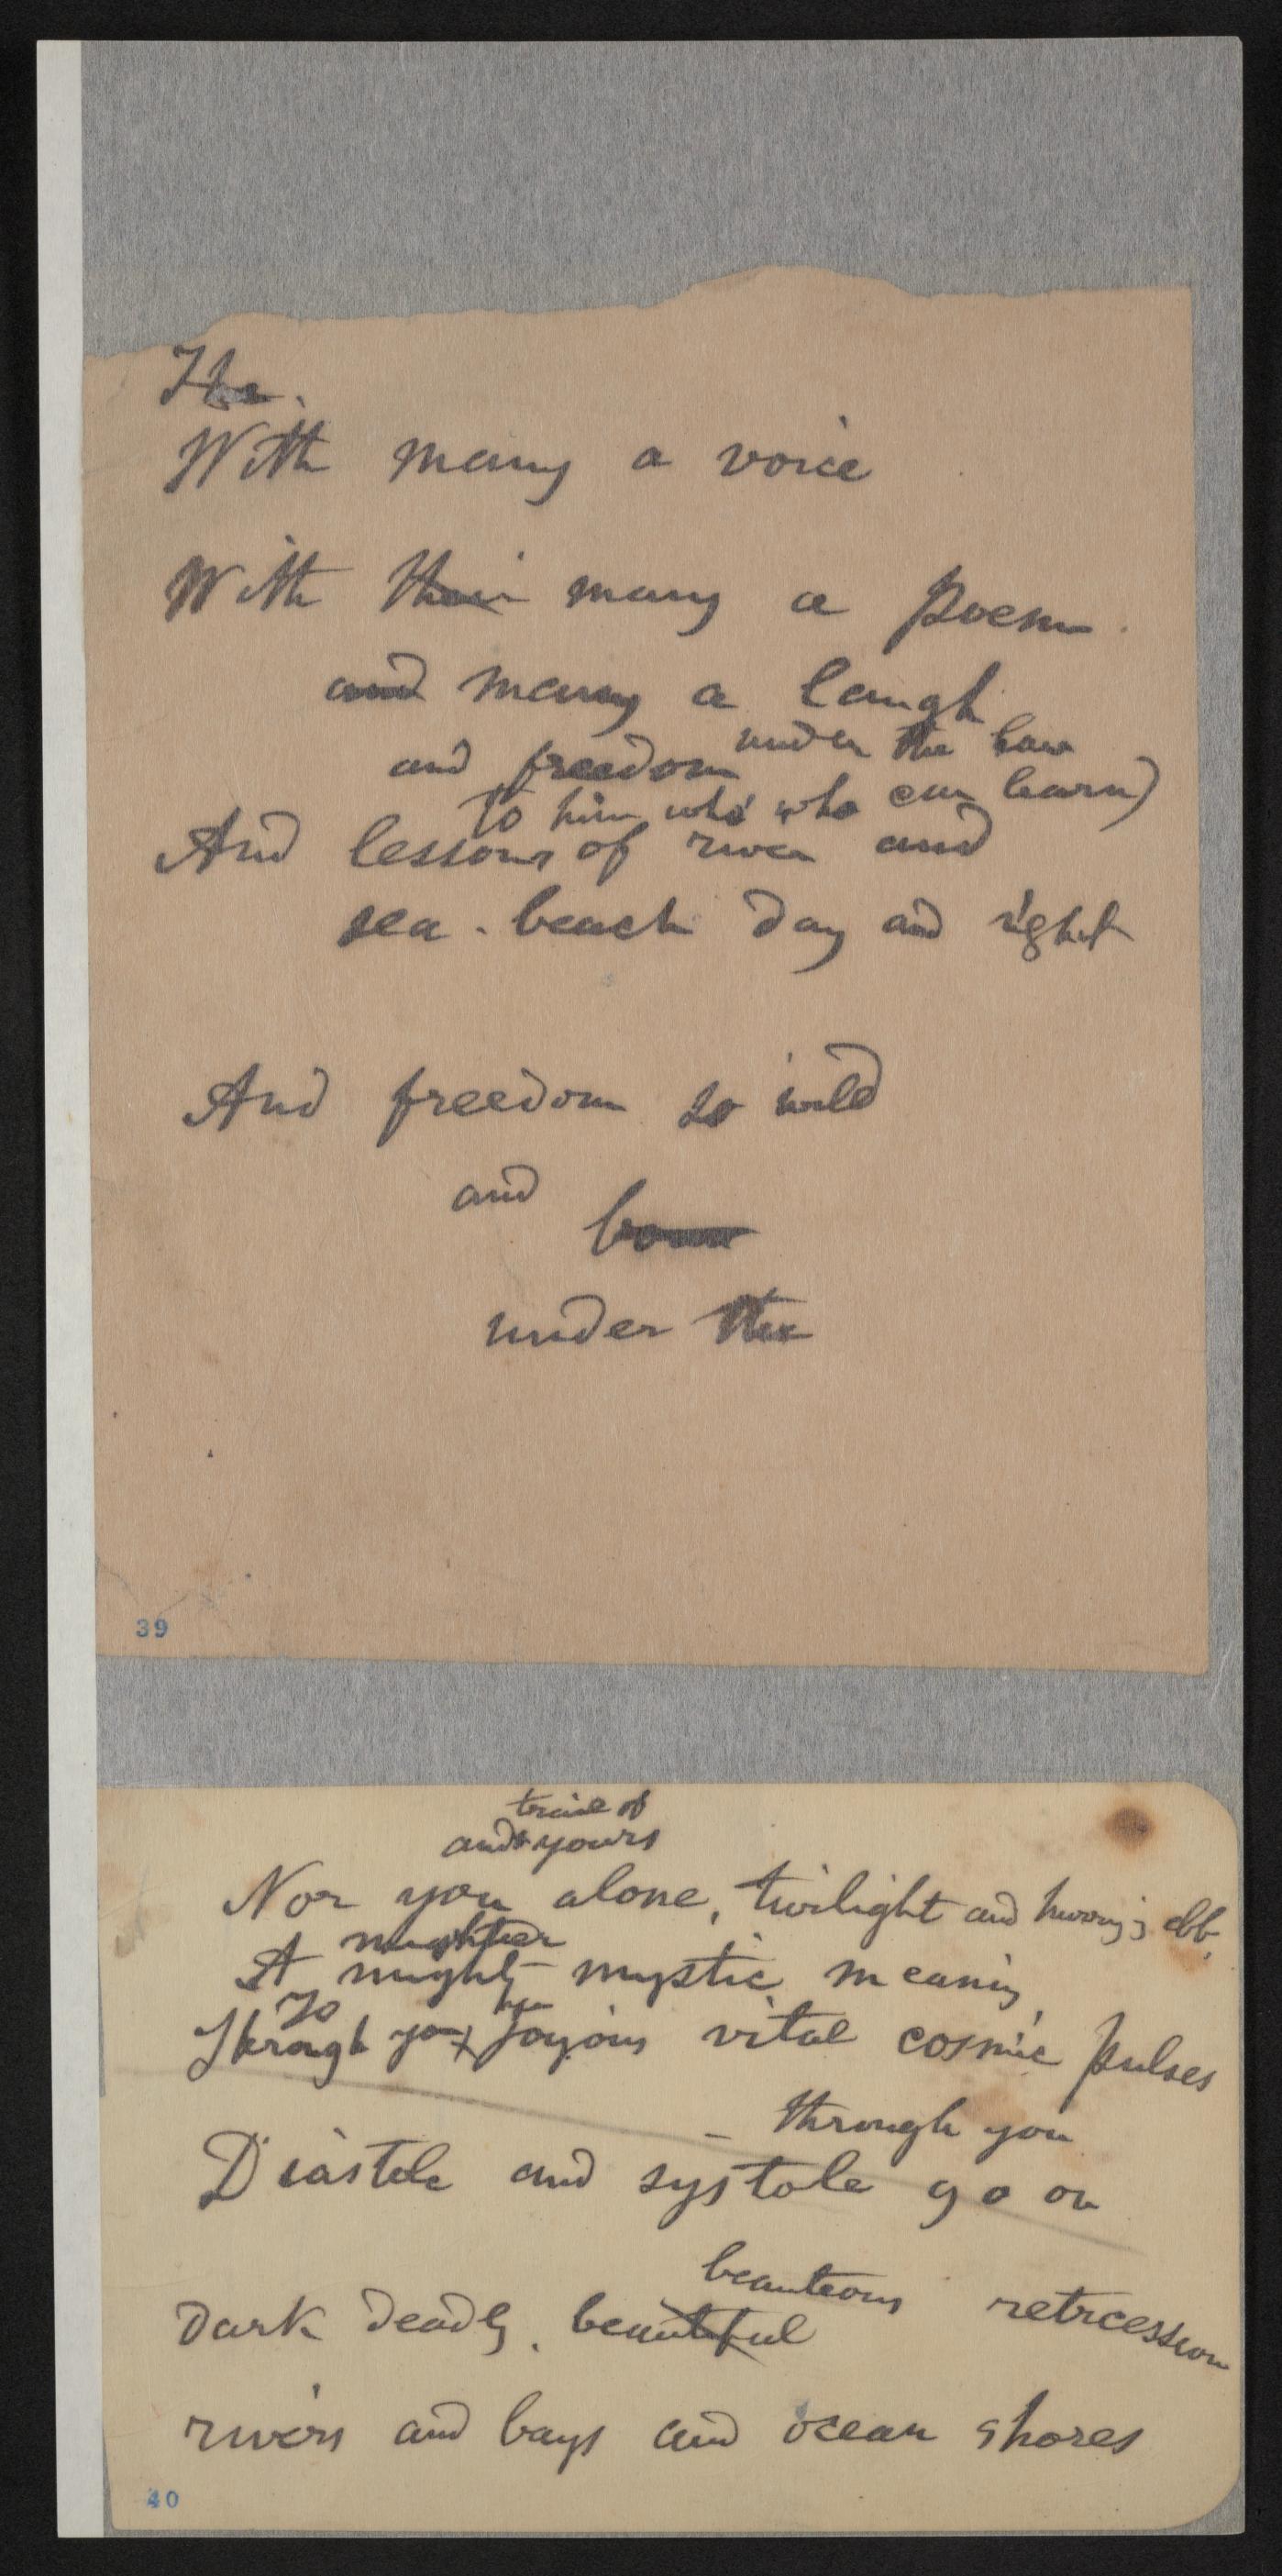 The
With many a voice
With their many a poem
and many a laugh
under the law
and freedom
to him who who can learn)
And lessons of river and
sea-beach day and night
And freedom so wild
and
under the
39
trail of
and yours
Nor you alone, twilight and hurrying ebb,
mightier
A mighty mystic meaning,
To
Through you joyous vital cosmic pulses
- through you
Diastole and systole go on
beauteous retrcession
Dark deadly, beautiful
rivers and bays and ocean shores
40